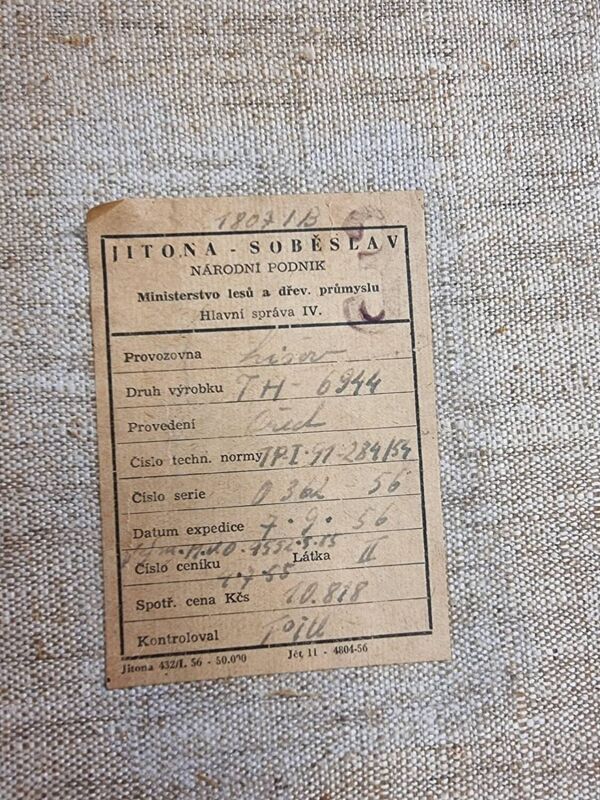 1807 1B
JITONA - SOBĚSLAV
NÁRODNÍ PODNIK
Ministerstvo lesů a dřev. průmyslu
Hlavní správa IV.
Provozovna
Druh výrobku TH - 6944
Provedení Ořech
Číslo techn. normy TP-I-91-284/54
Číslo serie 0362 56
Datum expedice 7.9. 56
Číslo ceníku Látka II
Spotř. cena Kčs 10.818
Kontroloval
Jitona 432/I. 56 - 50.000 Jčt 11 - 4804-56